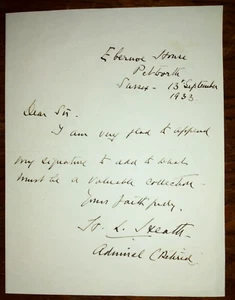 Ebernoe House
Petworth
Sussex - 13th September
1933
Dear Sir.
I am very glad to append
my signature to add to what
must be a valuable collection.
Yours faithfully.
H. L. Heath
Admiral (Retired)